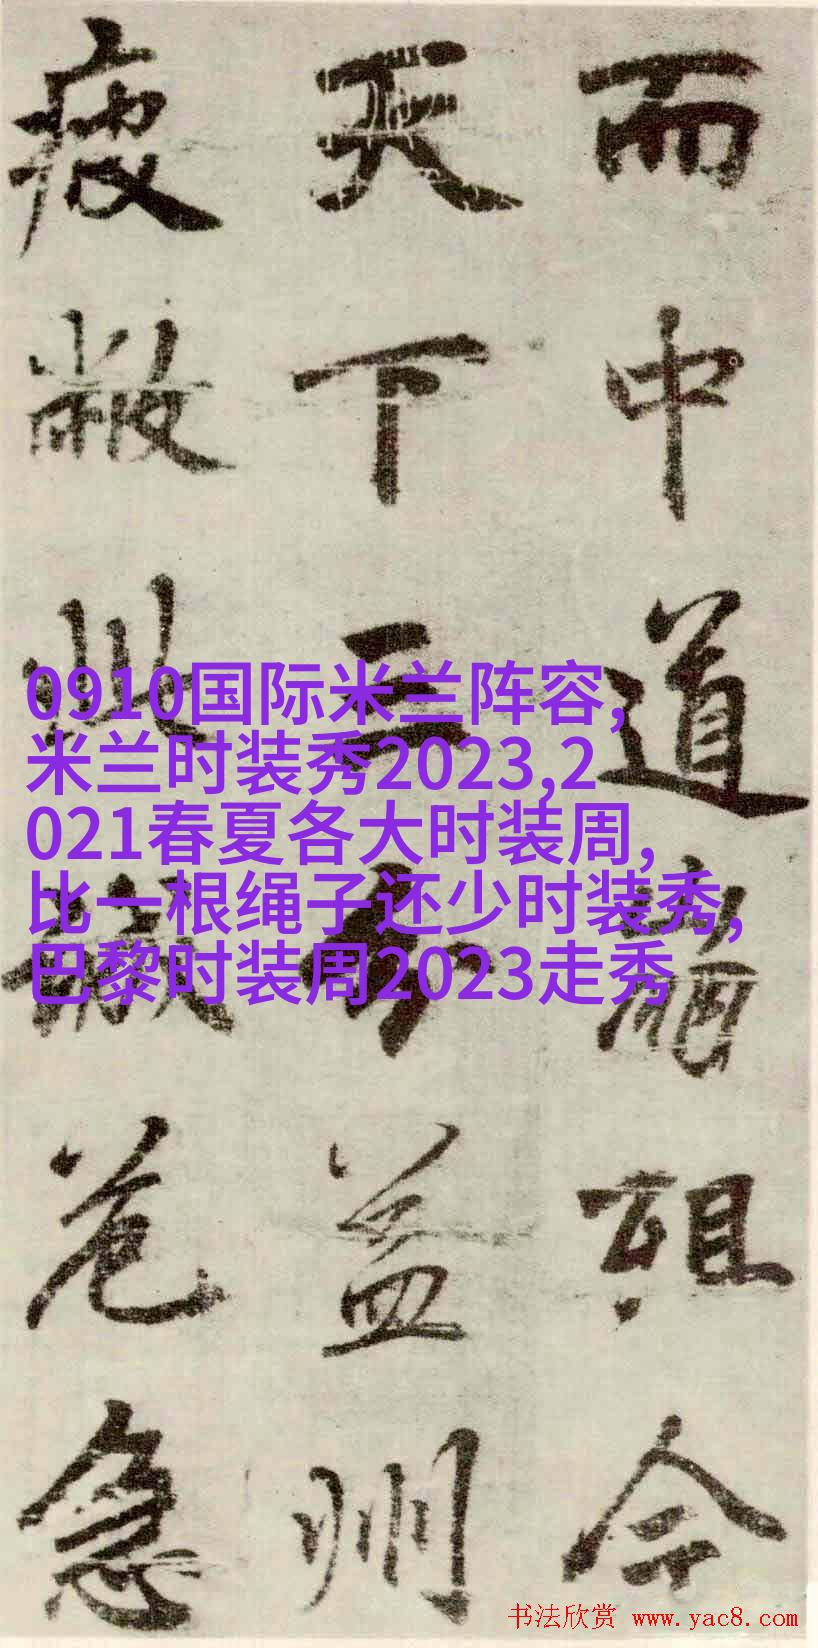 而中道崩殂今
天下三分益州
疲敝此誠危急
0910国际米兰阵容,
米兰时装秀2023,2
021春夏各大时装周,
比一根绳子还少时装秀,
巴黎时装周2023走秀
书法欣赏 www.yac8.com